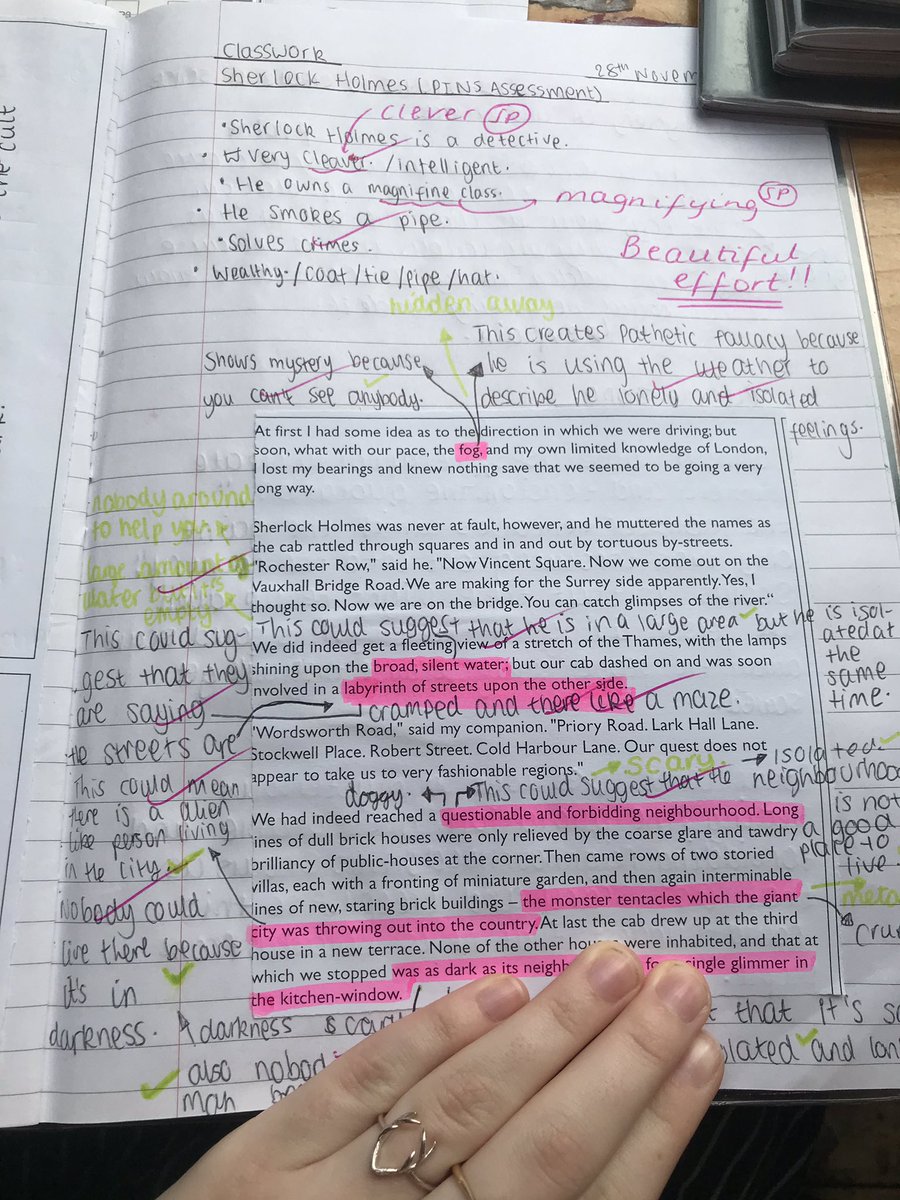 Classwork
28th Novem
Sherlock Holmes (PINS Assessment)
clever SP
•Sherlock Holmes is a detective.
• very cleaver. /intelligent.
• He owns a magnifine class.
magnifying SP
• He smokes a pipe.
• Solves crimes.
• Wealthy/coat/tie/pipe/hat.
Beautiful
effort!!
hidden away
This creates Pathetic fallacy because
he is using the weather to
describe he lonely and isolated
feelings.
Shows mystery because
you can't see anybody.
At first I had some idea as to the direction in which we were driving; but
soon, what with our pace, the fog, and my own limited knowledge of London,
I lost my bearings and knew nothing save that we seemed to be going a very
ong way.
nobody around
to help you
large amount of
water but it's
empty
Sherlock Holmes was never at fault, however, and he muttered the names as
the cab rattled through squares and in and out by tortuous by-streets.
"Rochester Row," said he. "Now Vincent Square. Now we come out on the
Vauxhall Bridge Road. We are making for the Surrey side apparently. Yes, I
thought so. Now we are on the bridge. You can catch glimpses of the river."
This could suggest that he is in a large area but he
is isol-
ated at
the
same
time.
We did indeed get a fleeting view of a stretch of the Thames, with the lamps
shining upon the broad, silent water; but our cab dashed on and was soon
nvolved in a labyrinth of streets upon the other side.
cramped and there like a maze.
This could sug-
gest that they
are saying
the streets are
"Wordsworth Road," said my companion. "Priory Road. Lark Hall Lane.
Stockwell Place. Robert Street. Cold Harbour Lane. Our quest does not
appear to take us to very fashionable regions."
scary
isolated
doggy.
This could suggest that the neighbourhood
is not
a good
place to
live.
This could mean
there is a alien
like person living
in the city.
We had indeed reached a questionable and forbidding neighbourhood. Long
ines of dull brick houses were only relieved by the coarse glare and tawdry
brilliancy of public-houses at the corner. Then came rows of two storied
villas, each with a fronting of miniature garden, and then again interminable
ines of new, staring brick buildings – the monster tentacles which the giant
city was throwing out into the country. At last the cab drew up at the third
house in a new terrace. None of the other hou were inhabited, and that at
which we stopped was as dark as its neighb single glimmer in
the kitchen-window.
meta
Cru
Nobody could
live there because
it's in
darkness.
darkness
that it's
lated and lon
also nobod
man